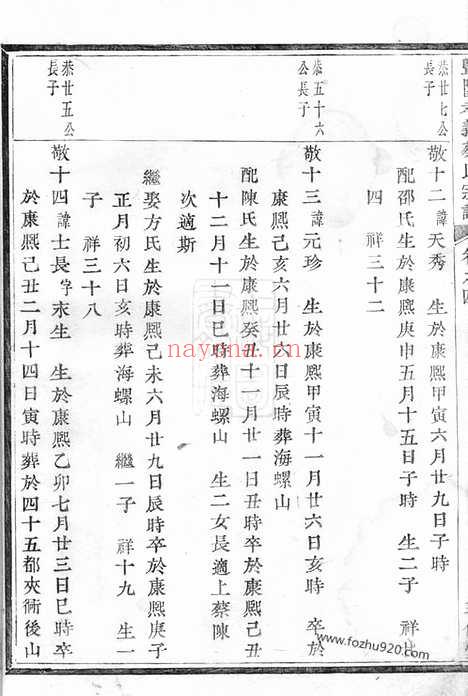 恭廿七公
長子
敬十二 諱 天秀 生於康熙甲寅六月廿九日子時
配邵氏生於康熙庚申五月十五日子時 生二子 祥廿
四 祥三十二
恭五十六
公長子
敬十三 諱 元珍 生於康熙甲寅十一月廿六日亥時 卒於
康熙己亥六月廿六日辰時葬海螺山
配陳氏生於康熙癸丑十一月廿一日丑時卒於康熙
十二月十一日巳時葬海螺山 生二女長適上蔡陳
次適斯
繼娶方氏生於康熙己未六月廿九日辰時卒於康熙庚子
正月初六日亥時葬海螺山 繼一子 祥十九 生一
子 祥三十八
恭廿五公
長子
敬十四 諱 士長 字 未生 生於康熙乙卯七月廿三日巳時卒
於康熙己丑二月十四日寅時葬於四十五都夾衕後山
nayona.cn
www.fozhu920.com